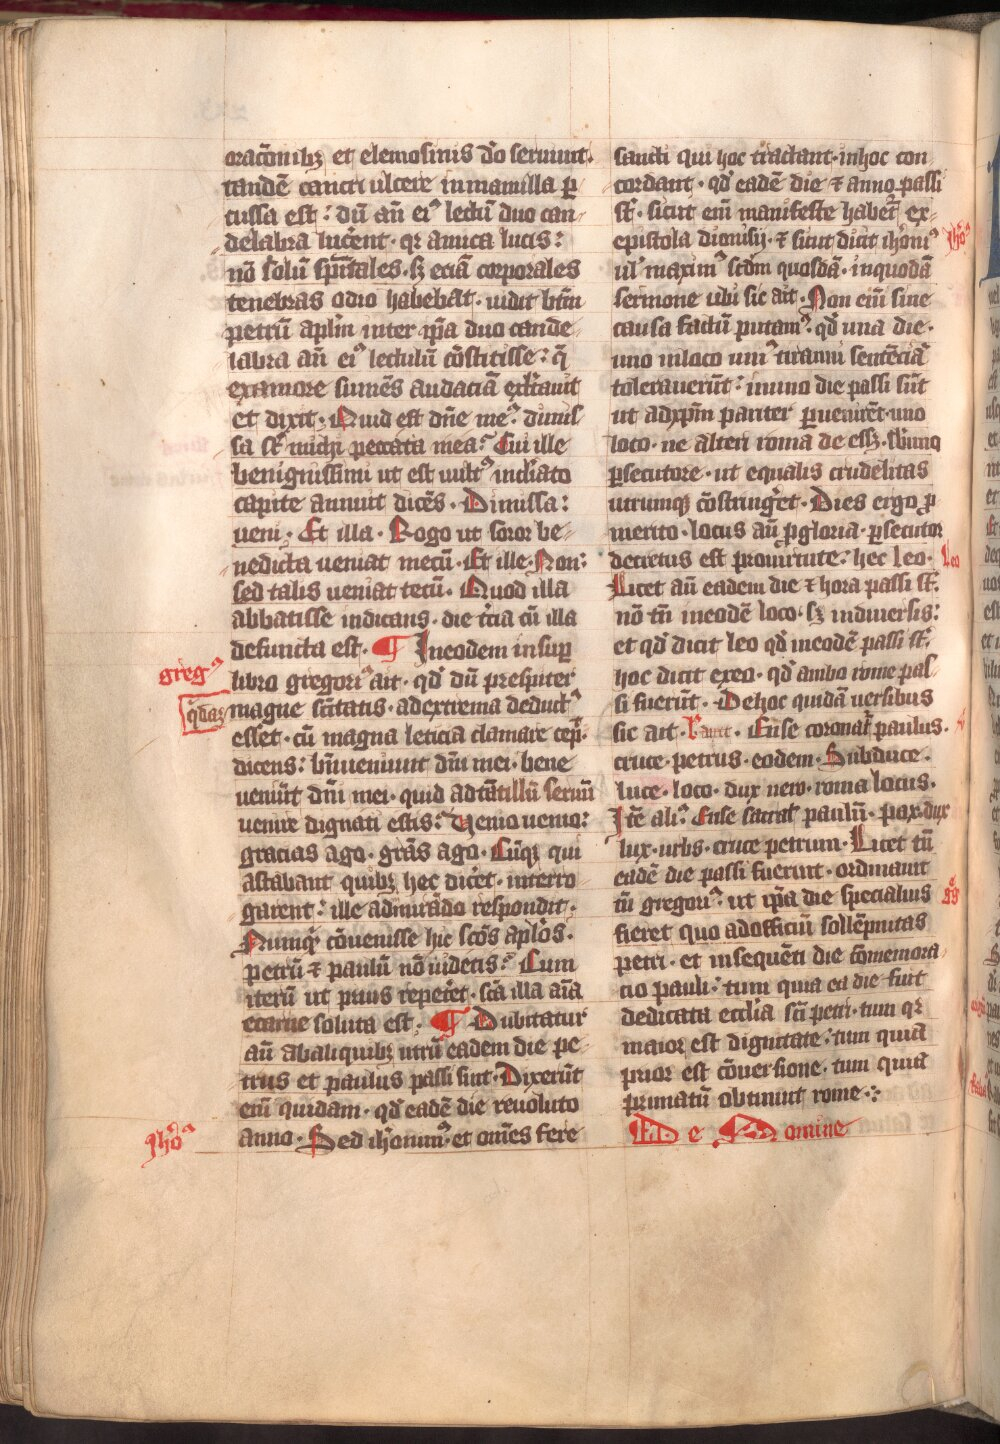 orac̄onibꝫ et elemosinis dō seruiunt.
tandē cancri ulcere in mamilla ꝑ
cussa est : dū aū eiꝰ lectū duo can
delabra lucēent · qr amica lucis :
nō solū spūales · sꝫ eciā corporales
tenebras odio habebat · uidit btm̄
petrū aplm̄ inter ip̄a duo cande
labra aū eiꝰ lectulū cōstitisse : q̄
ex amore sumēs audaciā exltauit
et dixit · Quid est dn̄e meꝰ · dimis
sa st̄ michi peccata mea? Cui ille
benignissimi ut est uultꝰ incliato
capite annuit dicēs · Dimissa :
ueni · Et illa · Rogo ut soror be
nedicta ueniat mecū · Et ille · Non :
sed talis ueniat tecū · Quod illa
abbatisse indicans · die t̄cia cū illa
defuncta est · ¶ In eodem insuꝑ
libro gregoriꝰ ait · qd̄ dū presbiter
gregꝰ
q̄dā magne sc̄itatis · ad extrema deductꝰ
esset · cū magna leticia clamare cep̄t ·
dicens : bn̄ ueniunt dn̄i mei · bene
ueniūt dn̄i mei · quid ad tātillū seruū
uenire dignati estis? Uenio uenio :
gracias ago · grās ago · Cūqꝫ qui
astabant quibꝫ hec dicēt · interro
garent : ille admirādo respondit ·
Nunqͥd cōuenisse hic scōs aplōs ·
petrū ⁊ paulū nō uidetis? Cum
iterū ut prius repetēt · scā illa aīa
e carne soluta est · ¶ Dubitatur
aū ab aliquibꝫ utrū eadem die pe
trus et paulus passi sint · Dixerūt
eiū quidam · qd̄ eadē die reuoluto
anno · Sed ih̄onimꝰ · et om̄es fere
ih̄oꝰ
sancti qui hoc tractant · in hoc con
cordant · qd̄ eadē die ⁊ anno passi
st̄ · sicut eiū manifeste habet̄ ex
epistola dionisij · ⁊ sicut dicit ih̄oniꝰ
ih̄oꝰ
ul̄ maximꝰ scdm̄ quosdā · in quodā
sermone ubi sic ait · Non eiū sine
causa factū putamꝰ · qd̄ una die ·
uno in loco uniꝰ tiranni sentēciā
tolerauerūt : in uno die passi sūt
ut ad xp̄m pariter ꝑuenirēt · uno
loco · ne alteri roma deessꝫ · sb̄ uno
ꝑsecutore · ut equalis crudelitas
utrumqꝫ cōstringēt · Dies ergo ꝓ
merito · locus aū ꝓ gloria · ꝑsecutor
decretus est pro uirtute : hec leo ·
leo
Licet aū eadem die ⁊ hora passi st̄ ·
nō tn̄ in eodē loco · sꝫ in diuersis :
et qd̄ dicit leo qd̄ in eodē passi st̄ ·
hoc dicit ex eo · qd̄ ambo rome pas
si fuerūt · De hoc quidā uersibus
sic ait · Ense coronat̄ paulus ·
cruce · petrus · eodem · Sub duce ·
luce · loco · dux nero · roma locus ·
Itē aliꝰ · Ense sacrat̄ paulū · pax · dux
lux · urbs · cruce petrum · Licet tn̄
eadē die passi fuerint · ordinauit
tn̄ gregoriꝰ · ut ip̄a die specialius
gg
fieret quo ad officiū sollēpnitas
petri · et in sequēti die cōmemora
cio pauli : tum quia ea die fuit
dedicata ecclīa sc̄i petri · tum qr
maior est dignitate : tum quia
prior est cōuersione · tum quia
primatū obtinuit rome ·:·